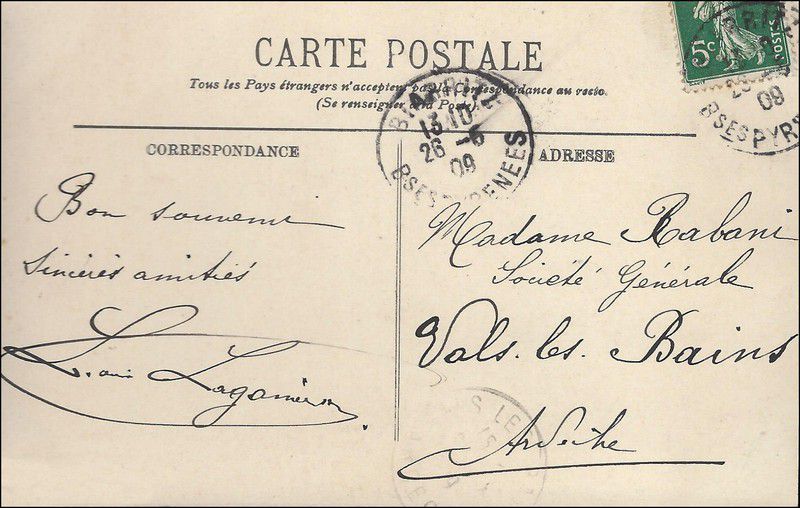 CARTE POSTALE
Tous les Pays étrangers n'acceptent pas la Correspondance au recto.
(Se renseigner à la Poste)
5c
BIARRITZ
13 10
26 -6
09
BSES PYRENEES
09
BSES PYR
CORRESPONDANCE
ADRESSE
Bon souvenir
Sincères amitiés
Louis
Madame Rabani
Société Générale
Vals. les. Bains
Ardèche
S LE